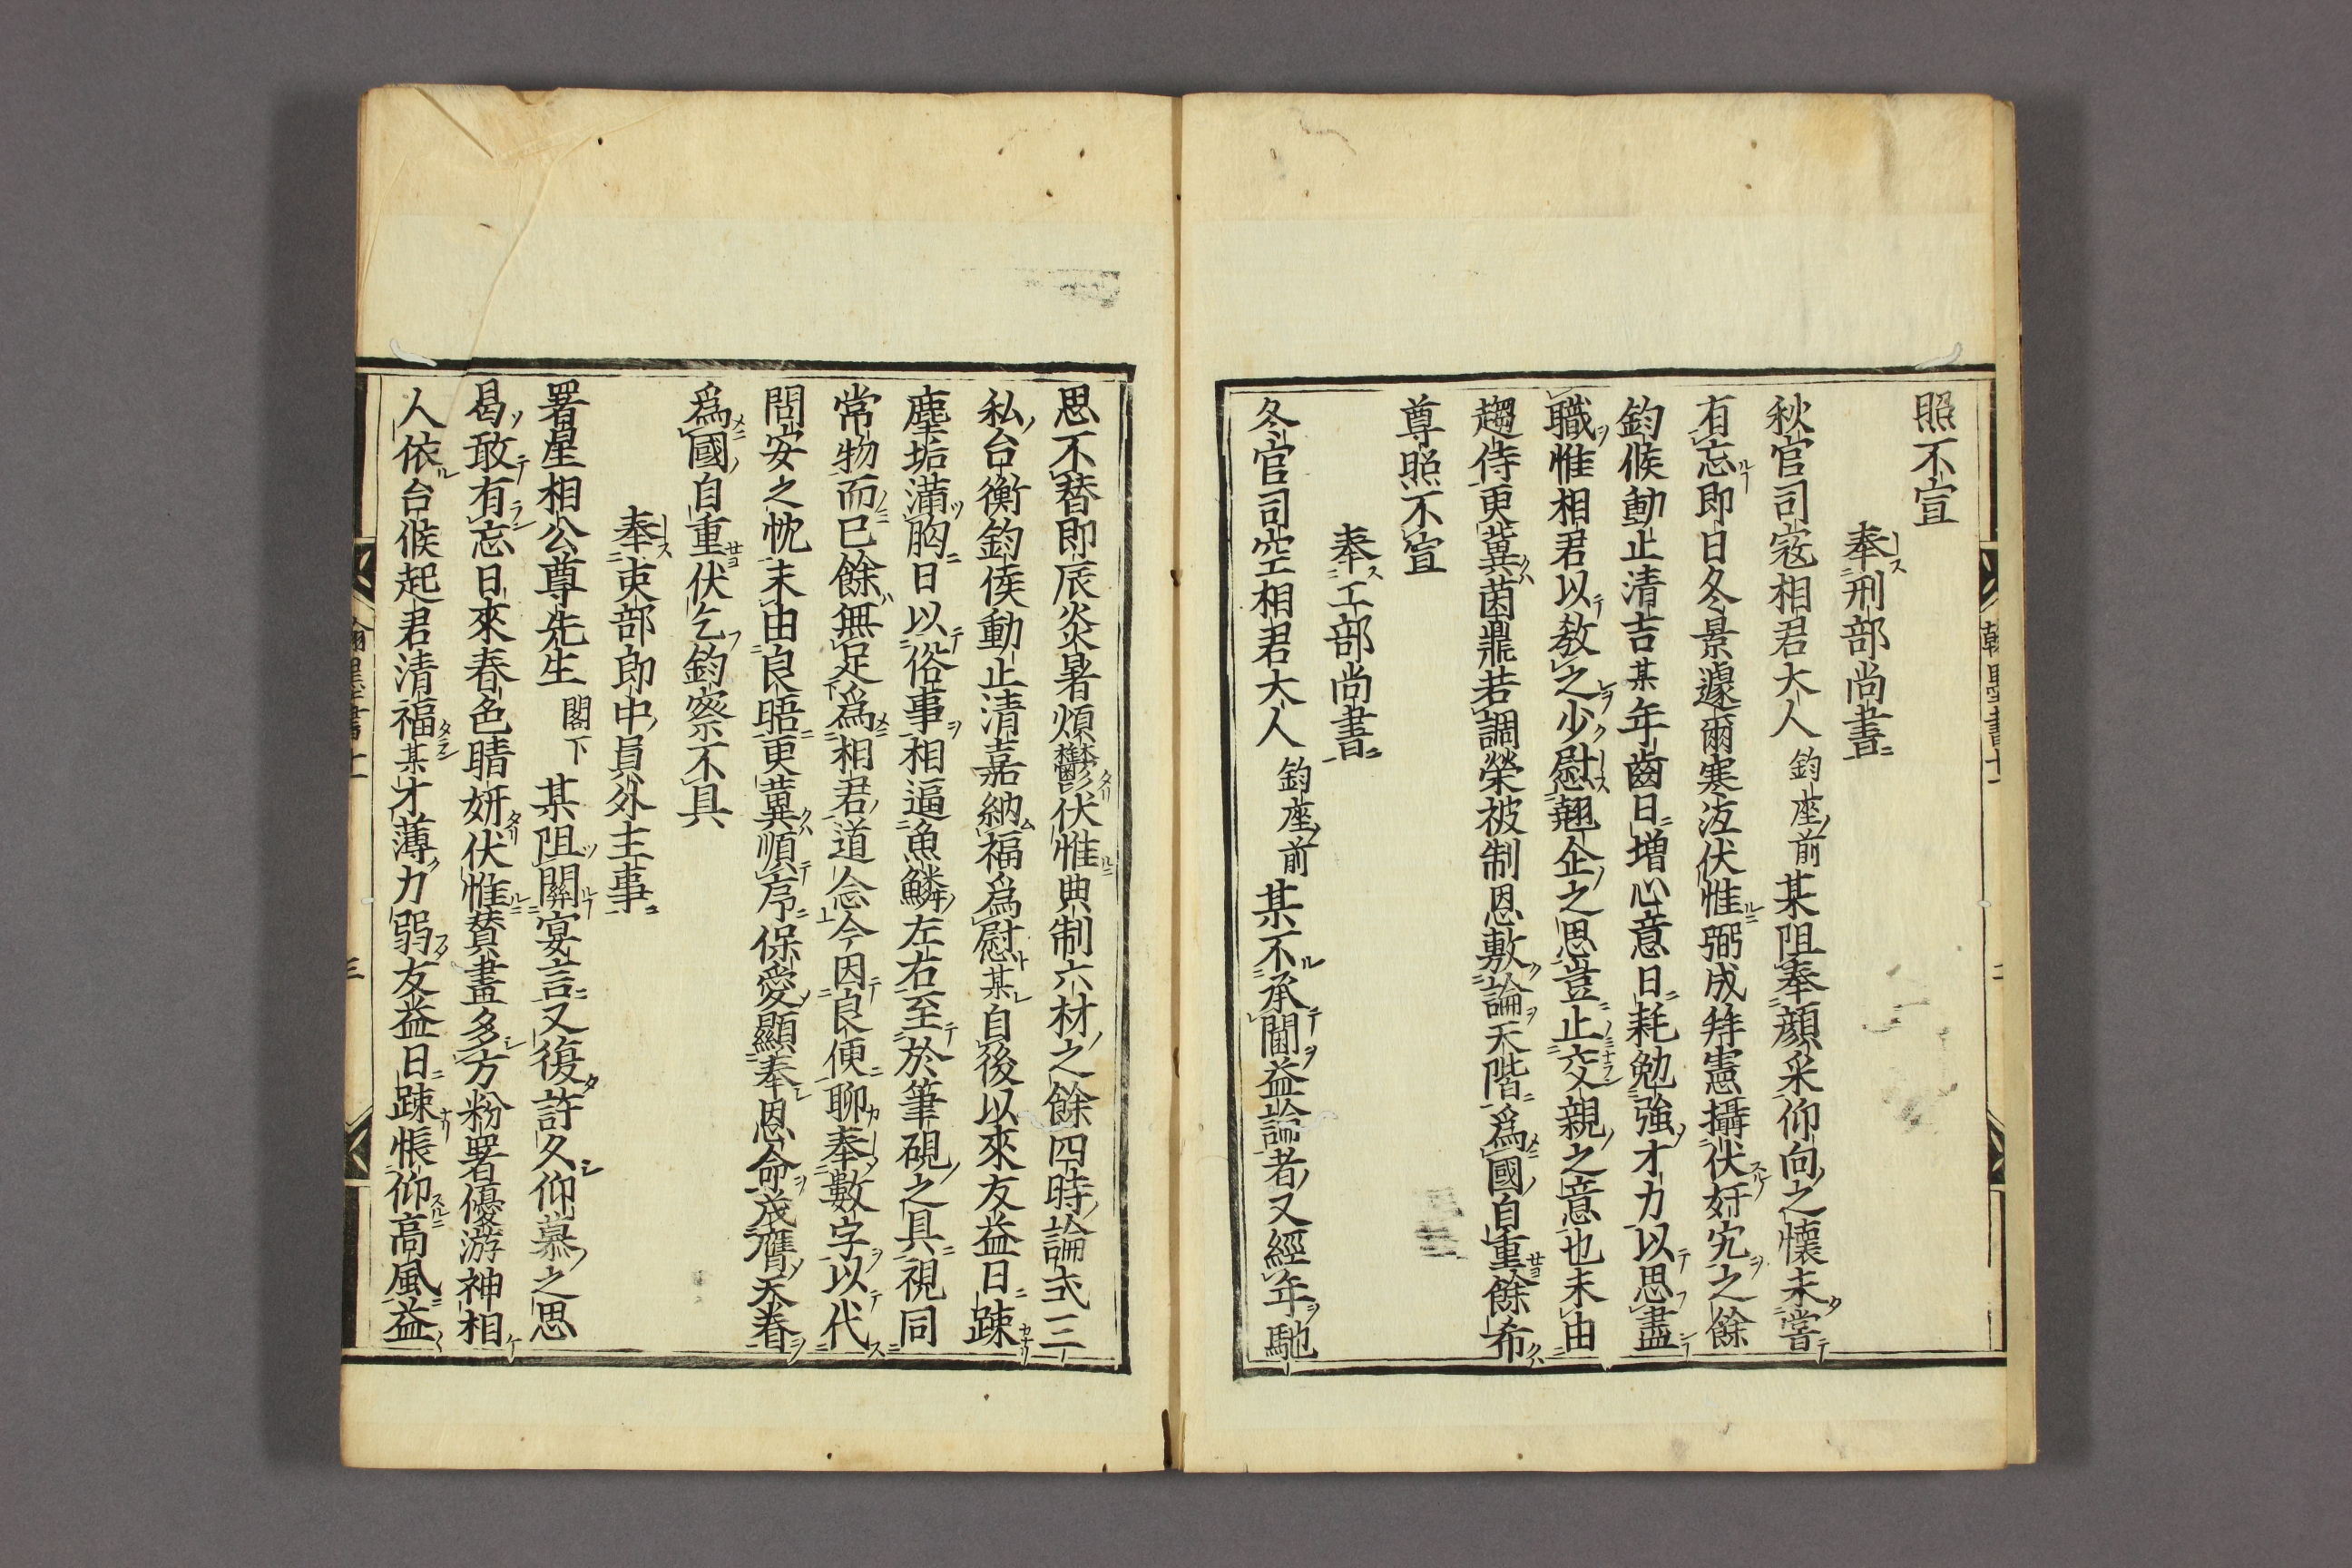 照不宣
奉刑部尚書
秋官司寇相君大人 鈞座前 某阻奉顔采仰向之懐未甞
有忘即日冬景遽爾寒冱伏惟弼成特憲攝伏奸宄之餘
鈞候動止清吉某年齒日増心意日耗勉強才力以思盡
職惟相君以教之少慰翹企之思豈止交親之意也未由
趨侍更冀茵鼎若調榮被制恩敷論天階為國自重餘希
尊照不宣
奉工部尚書
冬官司空相君大人 鈞座前 某不承聞益論者又經年馳
思不替即辰炎暑煩鬱伏惟典制六材之餘四時論弐三
私台衡鈞侯動止清嘉納福為慰某自後以來友益日踈
塵垢満胸日以俗事相逼魚鱗左右至於筆硯之具視同
常物而已餘無足為相君道念今因良便聊奉數字以代
問安之忱未由良晤更冀順序保愛顯奉恩命茂膺天眷
為國自重伏乞鈞察不具
奉吏部郎中員外主事
署星相公尊先生 閣下 某阻闊宴言又復許久仰慕之思
曷敢有忘日來春色晴妍伏惟賛畫多方粉署優游神相
人依台候起君清福某才薄力弱友益日踈悵仰高風益
翰墨書十一 三